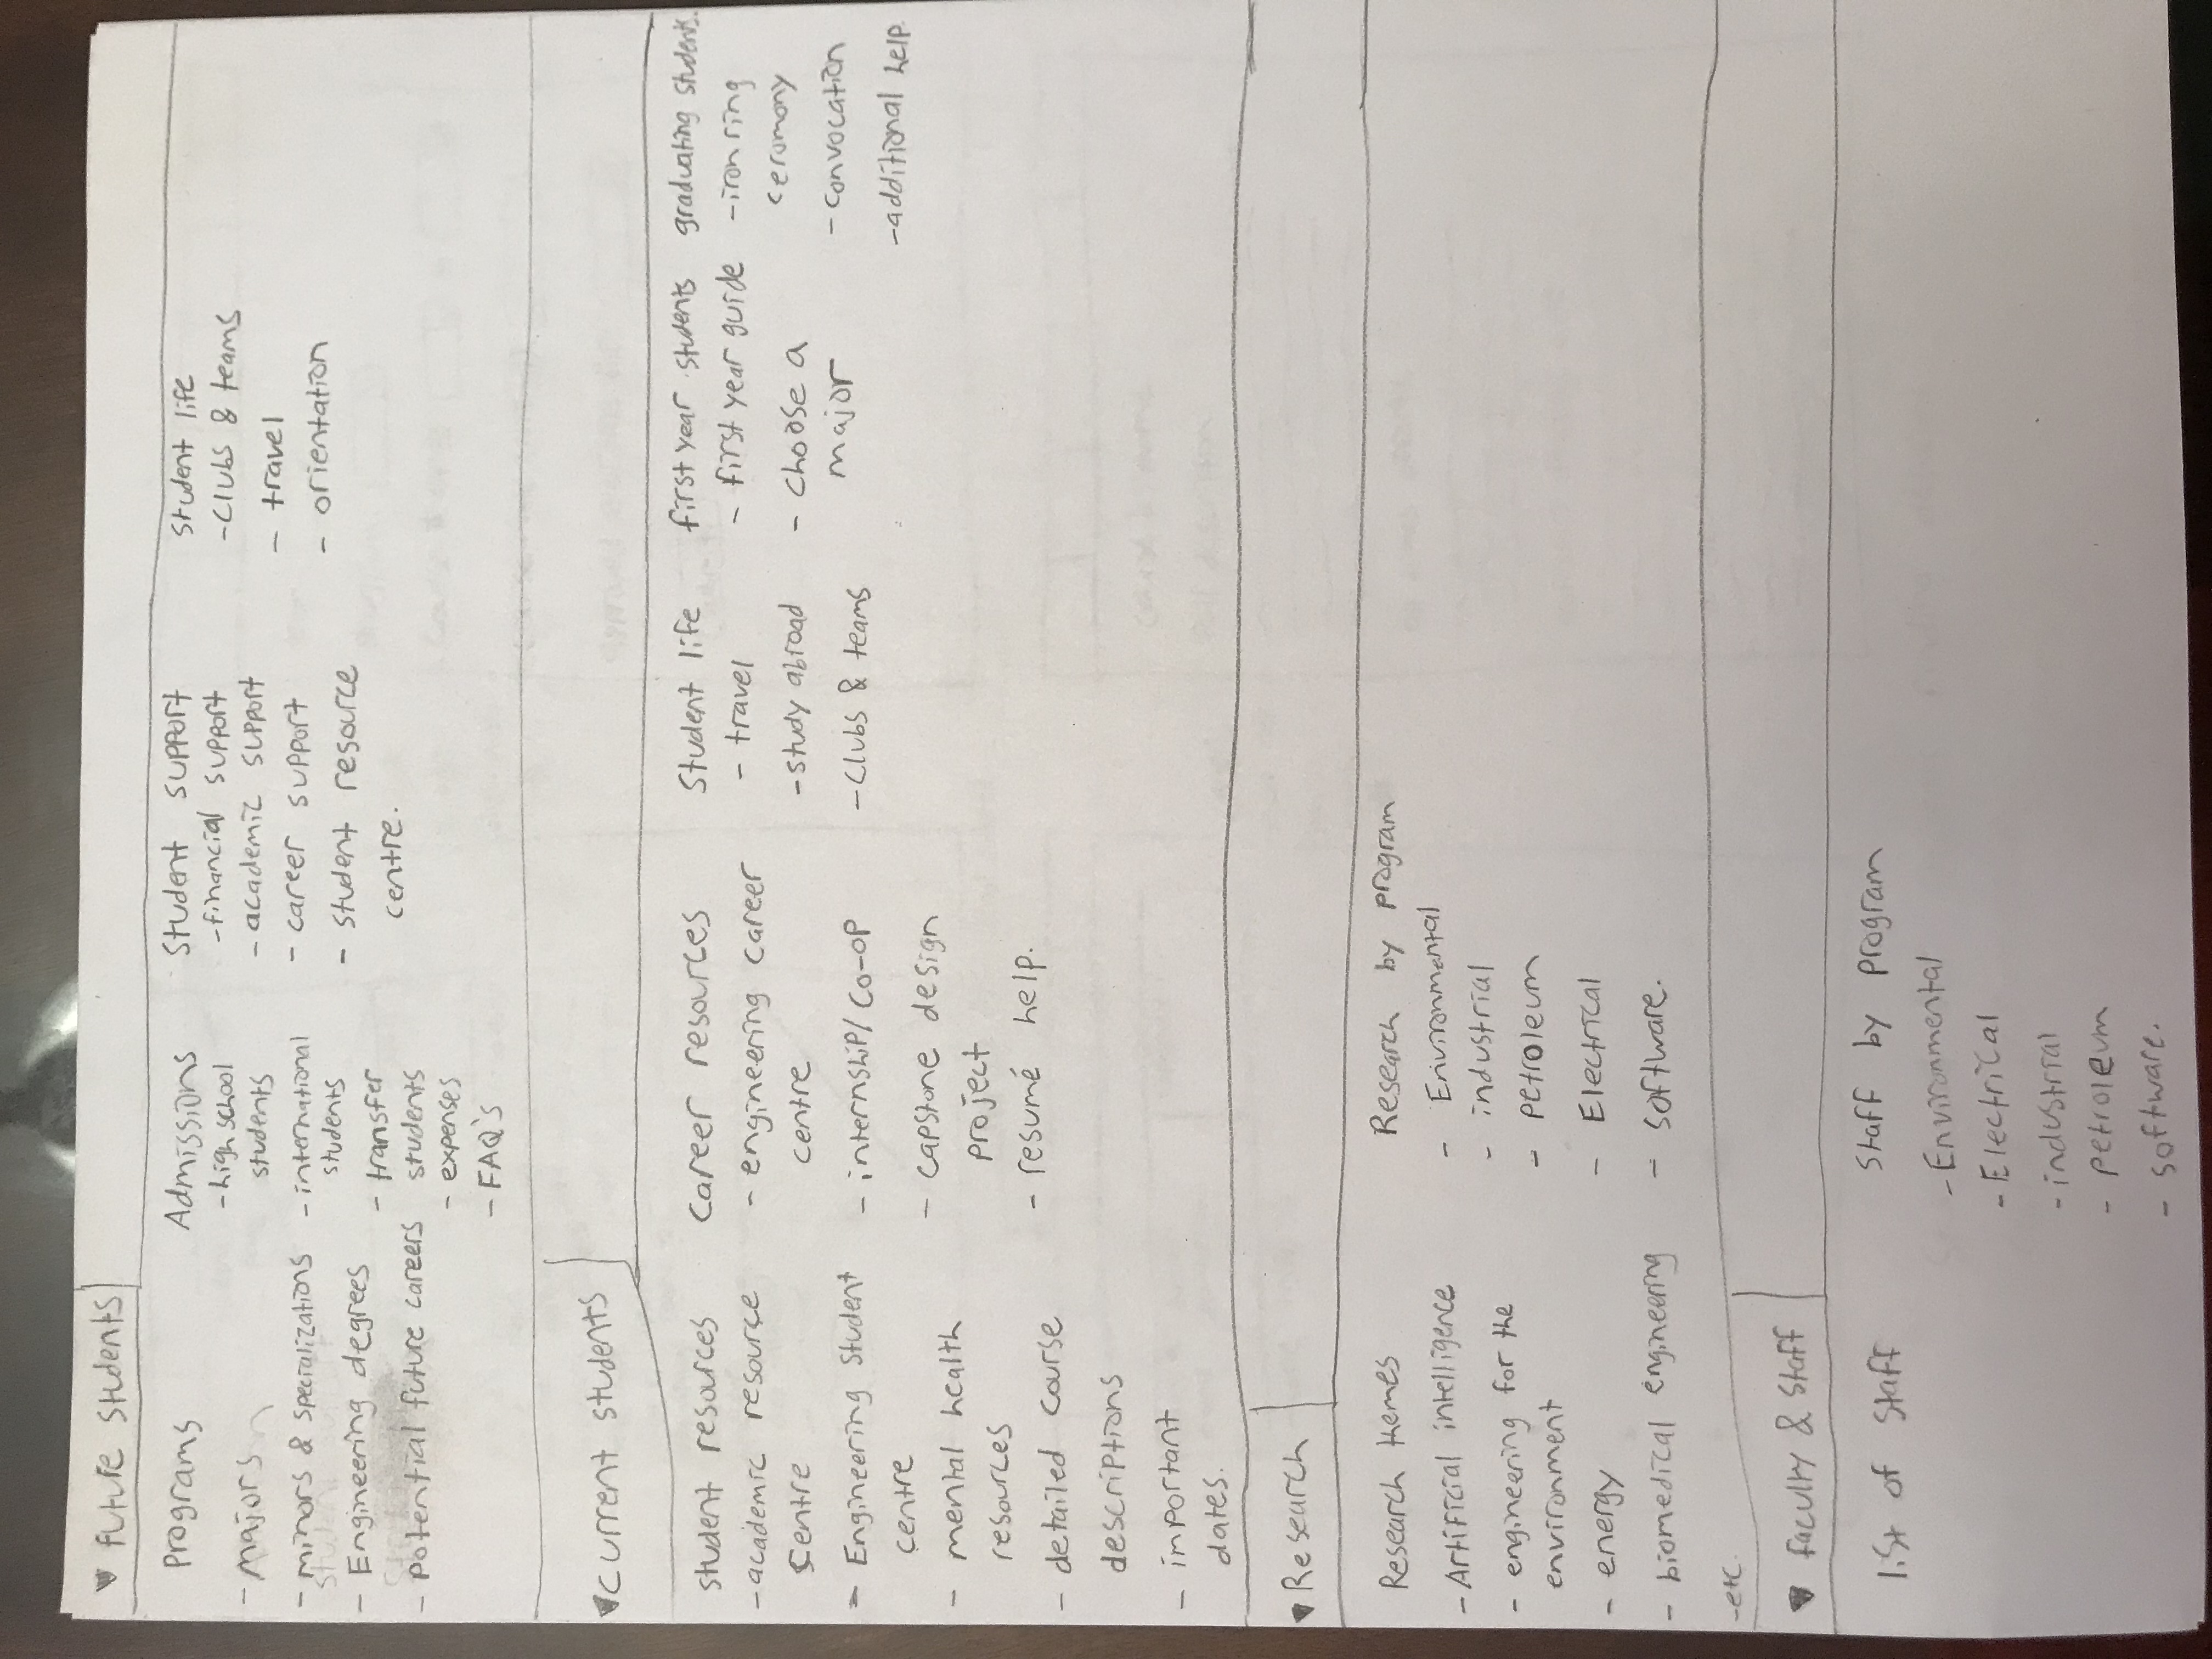 ▼ future students
Programs
- majors
- minors & specializations
- Engineering degrees
- Potential future careers
Admissions
- high school
students
- international
students
- transfer
students
- expenses
- FAQ's
Student support
- financial support
- academic support
- career support
- student resource
centre.
Student life
- clubs & teams
- travel
- orientation
▼ current students
student resources
- academic resource
centre
- Engineering Student
centre
- mental health
resources
- detailed course
descriptions
- important
dates.
career resources
- engineering career
centre
- internship/co-op
- capstone design
project
- resumé help.
Student life
- travel
- study abroad
- clubs & teams
first year students
- first year guide
- choose a
major
graduating students.
- iron ring
ceromony
- convocation
- additional help.
▼ Research
Research themes
- Artificial intelligence
- engineering for the
environment
- energy
- biomedical engineering
- etc.
Research by program
- Environmental
- industrial
- petroleum
- Electrical
- software.
▼ faculty & Staff
list of staff
Staff by program
- Environmental
- Electrical
- industrial
- petroleum
- software.